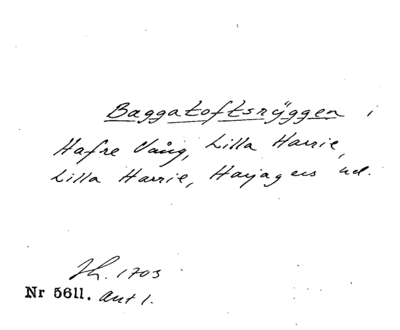 Baggatoftsrÿggen i
Hafre Vång, Lilla Harrie,
Lilla Harrie, Harjagers hd.
1703
Nr 5611. ant 1.